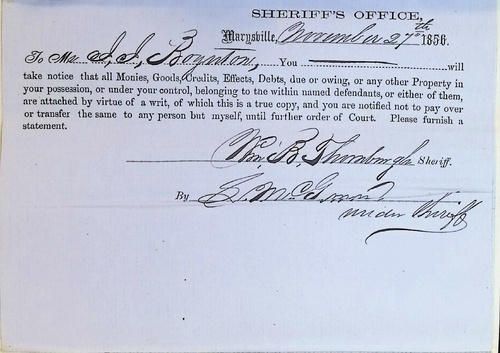 SHERIFF'S OFFICE,
Marysville, November 27th 1856.
To Mr. Boynton, You will
take notice that all Monies, Goods, Credits, Effects, Debts, due or owing, or any other Property in
your possession, or under your control, belonging to the within named defendants, or either of them,
are attached by virtue of a writ, of which this is a true copy, and you are notified not to pay over
or transfer the same to any person but myself, until further order of Court. Please furnish a
statement.
Wm. B. Thornburgh Sheriff.
By
under Sheriff